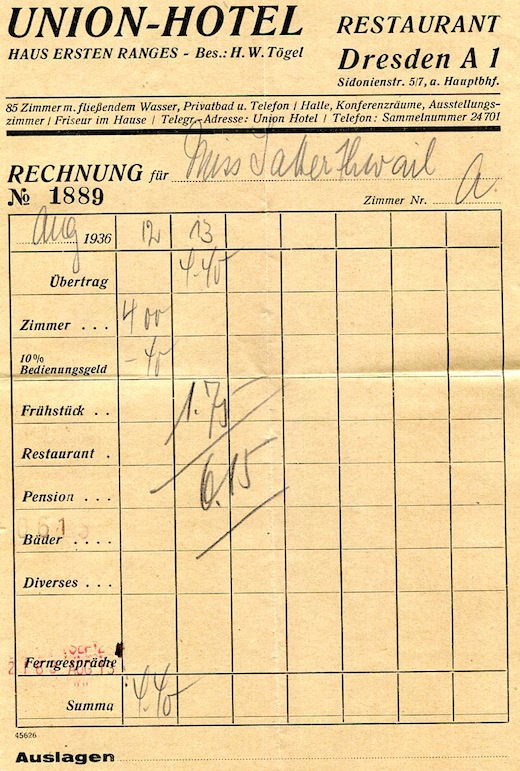 UNION-HOTEL
HAUS ERSTEN RANGES - Bes.: H. W. Tögel
RESTAURANT
Dresden A 1
Sidonienstr. 5/7, a. Hauptbhf.
85 Zimmer m. fließendem Wasser, Privatbad u. Telefon / Halle, Konferenzräume, Ausstellungs-
zimmer / Friseur im Hause / Telegr.-Adresse: Union Hotel / Telefon: Sammelnummer 24701
RECHNUNG für Miss Satterthwail
№ 1889
Zimmer Nr. A.
Aug 1936 12 13
Übertrag 4.40
Zimmer . . . 4 00
10% Bedienungsgeld - 40
Frühstück . . 1.75
Restaurant .
6.15
Pension . . .
Bäder . . . .
Diverses . . .
Ferngespräche
Summa 4.40
45626
Auslagen